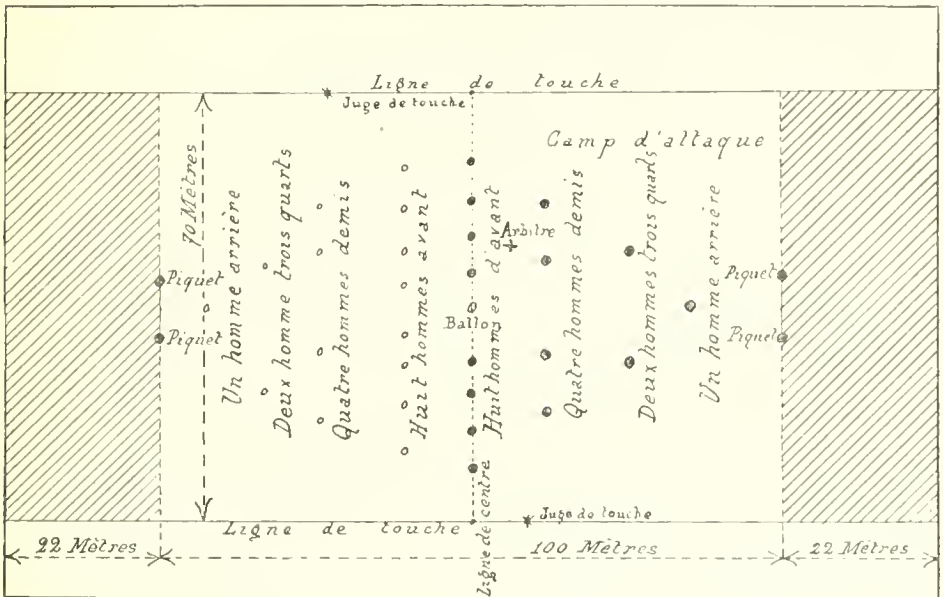 Ligne de touche
Juge de touche
Camp d'attaque
70 Mètres
Piquet
Piquet
Un homme arrière
Deux homme trois quarts
Quatre hommes demis
Huit hommes avant
Ballon
Huit hommes d'avant
Arbitre
Quatre hommes demis
Deux hommes trois quarts
Un homme arrière
Piquet
Piquet
Ligne de touche
Ligne de centre
Juge de touche
22 Mètres
100 Mètres
22 Mètres